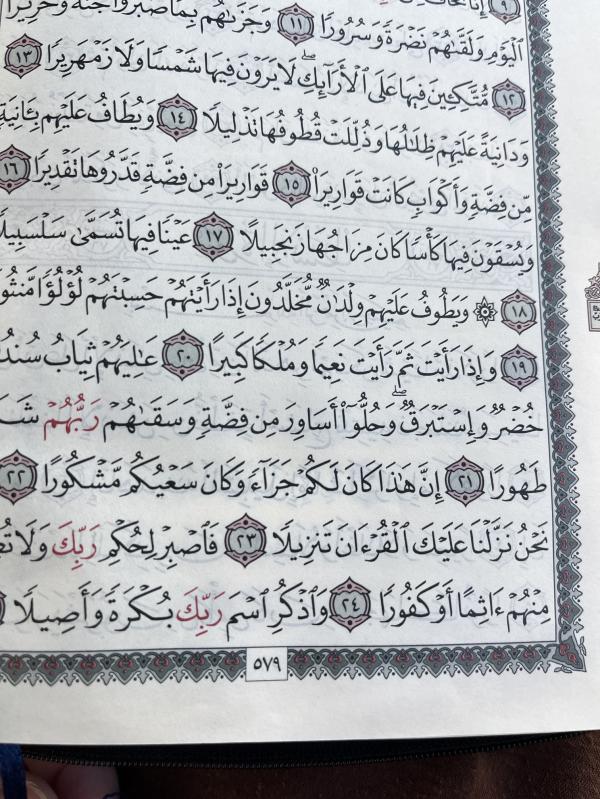 ٩ إِنَّا نَخَافُ
ٱلْيَوْمِ وَلَقَّىٰهُمْ نَضْرَةً وَسُرُورًا ١١ وَجَزَىٰهُم بِمَا صَبَرُوا۟ جَنَّةً وَحَرِيرًا
١٢ مُّتَّكِـِٔينَ فِيهَا عَلَى ٱلْأَرَآئِكِ ۖ لَا يَرَوْنَ فِيهَا شَمْسًا وَلَا زَمْهَرِيرًا ١٣
وَدَانِيَةً عَلَيْهِمْ ظِلَٰلُهَا وَذُلِّلَتْ قُطُوفُهَا تَذْلِيلًا ١٤ وَيُطَافُ عَلَيْهِم بِـَٔانِيَةٍ
مِّن فِضَّةٍ وَأَكْوَابٍ كَانَتْ قَوَارِيرَا۠ ١٥ قَوَارِيرَا۟ مِن فِضَّةٍ قَدَّرُوهَا تَقْدِيرًا ١٦
وَيُسْقَوْنَ فِيهَا كَأْسًا كَانَ مِزَاجُهَا زَنجَبِيلًا ١٧ عَيْنًا فِيهَا تُسَمَّىٰ سَلْسَبِيلًا
١٨ ۞ وَيَطُوفُ عَلَيْهِمْ وِلْدَٰنٌ مُّخَلَّدُونَ إِذَا رَأَيْتَهُمْ حَسِبْتَهُمْ لُؤْلُؤًا مَّنثُو
١٩ وَإِذَا رَأَيْتَ ثَمَّ رَأَيْتَ نَعِيمًا وَمُلْكًا كَبِيرًا ٢٠ عَٰلِيَهُمْ ثِيَابُ سُندُ
خُضْرٌ وَإِسْتَبْرَقٌ ۖ وَحُلُّوٓا۟ أَسَاوِرَ مِن فِضَّةٍ وَسَقَىٰهُمْ رَبُّهُمْ شَـ
طَهُورًا ٢١ إِنَّ هَٰذَا كَانَ لَكُمْ جَزَآءً وَكَانَ سَعْيُكُم مَّشْكُورًا ٢٢
نَحْنُ نَزَّلْنَا عَلَيْكَ ٱلْقُرْءَانَ تَنزِيلًا ٢٣ فَٱصْبِرْ لِحُكْمِ رَبِّكَ وَلَا تُطِـ
مِنْهُمْ ءَاثِمًا أَوْ كَفُورًا ٢٤ وَٱذْكُرِ ٱسْمَ رَبِّكَ بُكْرَةً وَأَصِيلًا
٥٧٩